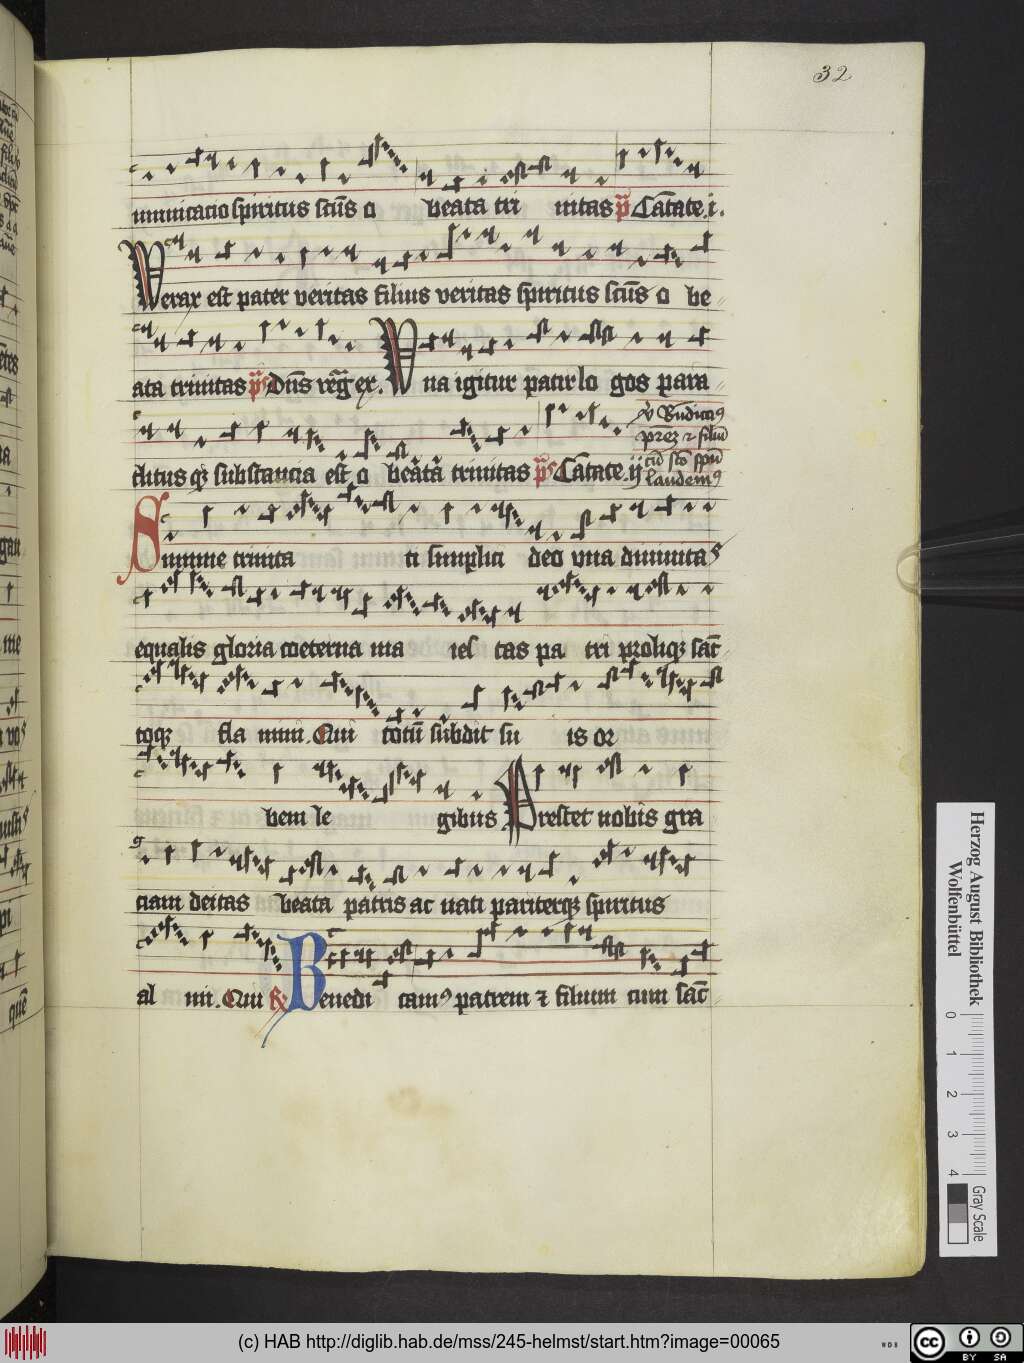 32
municacio spiritus sc̄us o beata tri nitas p̄s Cātate. i.
Verax est pater veritas filius veritas spiritus sc̄us o be
ata trinitas p̄s Dn̄s reḡ ex. Vna igitur pater lo gos para
v̄ Bn̄dicam9
prez̄ ⁊ filiū
clitus qꝫ substancia est o beata trinitas p̄s Cātate. ij
cū sc̄o spū
laudem9
Summe trinita ti simplici deo vna diuinitas
equalis gloria coeterna ma ies tas pa tri proliqꝫ sāc
toqꝫ fla mini. Qui totū subdit su is or
bem le gibus Prestet nobis gra
ciam deitas beata patris ac nati pariterqꝫ spiritus
al mi. Qui ℟ Benedi cam9 patrem ⁊ filium cum sāc
Herzog August Bibliothek
Wolfenbüttel
0 1 2 3 4
Gray Scale
(c) HAB http://diglib.hab.de/mss/245-helmst/start.htm?image=00065
WDB
cc BY SA